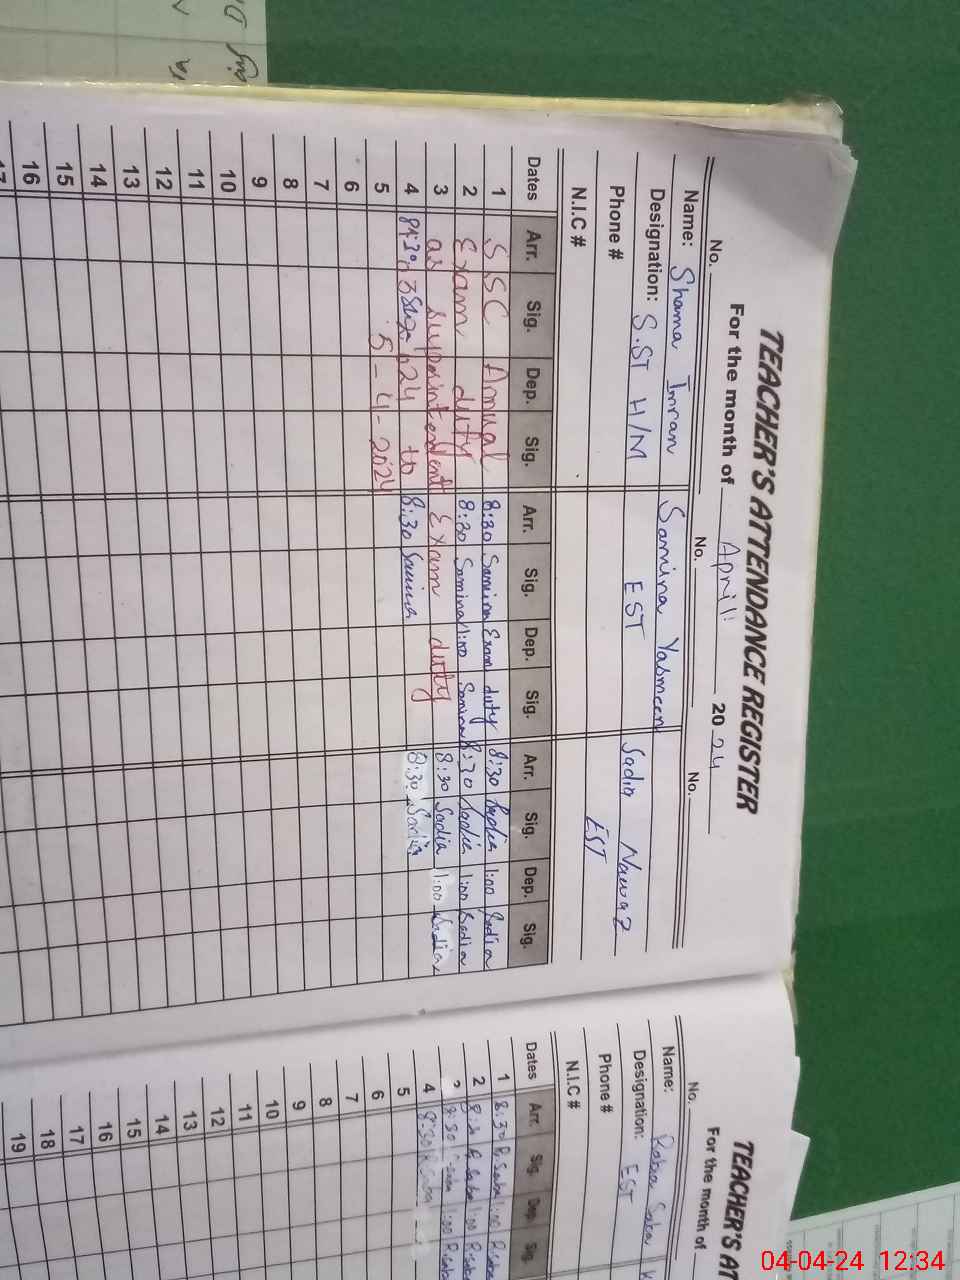 TEACHER'S ATTENDANCE REGISTER
For the month of April 2024
No. No. No.
Name: Shama Imran Samina Yasmeen Sadia Nawaz
Designation: S.ST H/M EST EST
Phone #
N.I.C #
Dates Arr. Sig. Dep. Sig. Arr. Sig. Dep. Sig. Arr. Sig. Dep. Sig.
1 SSC Annual 8:30 Samina Exam duty 8:30 Sadia 1:00 Sadia
2 Exam duty 8:30 Samina 1:00 Samina 8:30 Sadia 1:00 Sadia
3 as superintendent Exam duty 8:30 Sadia 1:00 Sadia
4 24 to 8:30 Samina 8:30 Sadia
5 5-4-2024
6
7
8
9
10
11
12
13
14
15
16
17
TEACHER'S AT
For the month of
No.
Name: Rabia Saba
Designation: EST
Phone #
N.I.C #
Dates Arr. Sig. Dep. Sig.
1 8:30 R.Saba 1:00 R.Saba
2 8:30 R.Saba 1:00 R.Saba
3 8:30 1:00 R.Saba
4 8:30 R.Saba
5
6
7
8
9
10
11
12
13
14
15
16
17
18
19
04-04-24 12:34